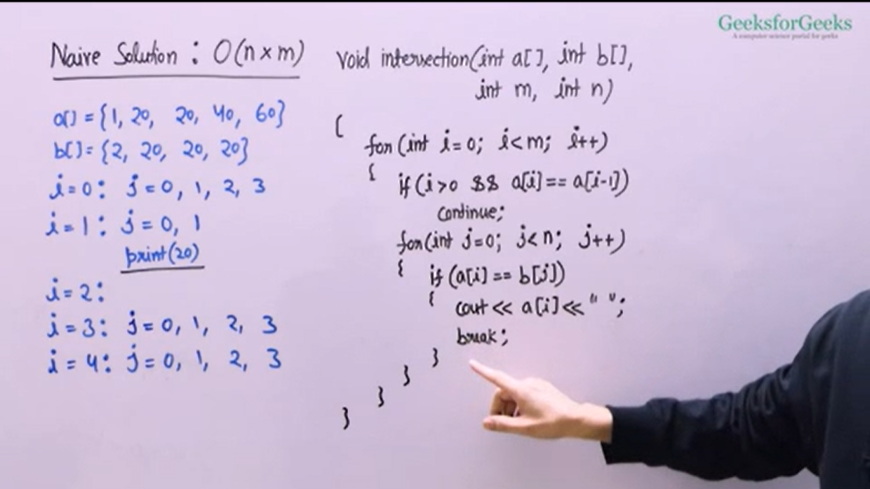 GeeksforGeeks
A computer science portal for geeks
Naive Solution : O(n×m)
a[] = {1, 20, 20, 40, 60}
b[] = {2, 20, 20, 20}
i=0: j=0, 1, 2, 3
i=1: j=0, 1
print(20)
i=2:
i=3: j=0, 1, 2, 3
i=4: j=0, 1, 2, 3
Void intersection(int a[], int b[],
int m, int n)
{
for(int i=0; i<m; i++)
{ if(i>0 && a[i]==a[i-1])
continue;
for(int j=0; j<n; j++)
{ if(a[i]==b[j])
{ cout << a[i]<<" ";
break;
}
}
}
}